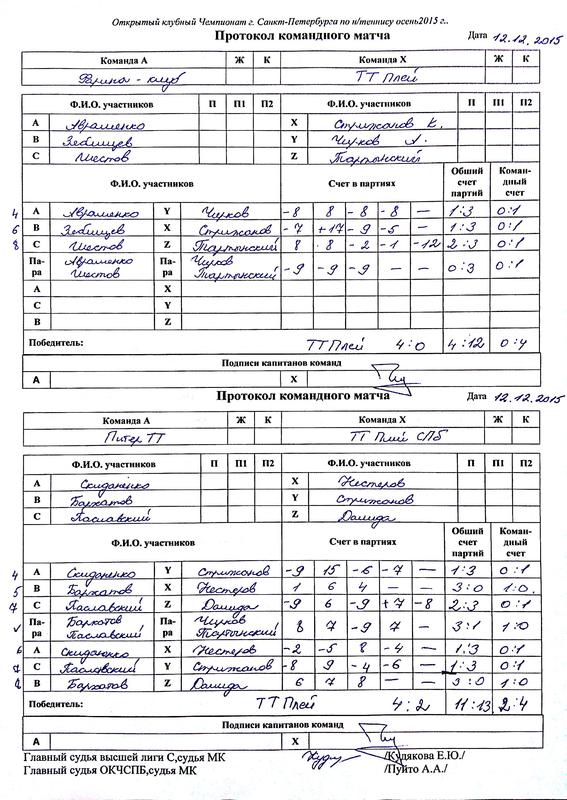 Открытый клубный Чемпионат г. Санкт-Петербурга по н/теннису осень2015 г..
Протокол командного матча Дата 12.12.2015
Команда А Ж К Команда Х Ж К
Фарина - клуб ТТ Плей
Ф.И.О. участников П П1 П2 Ф.И.О. участников П П1 П2
А Авраменко X Стрижанов К.
В Зевишцев Y Чирков А.
С Шестов Z Тартынский
Ф.И.О. участников Счет в партиях Общий счет партий Коман-дный счет
4 А Авраменко Y Чирков -8 8 -8 -8 — 1:3 0:1
6 В Зевишцев X Стрижанов -7 +17 -9 -5 — 1:3 0:1
8 С Шестов Z Тартынский 8 8 -2 -1 -12 2:3 0:1
Па-ра Авраменко Шестов Па-ра Чирков Тартынский -9 -9 -9 — — 0:3 0:1
А X
С Y
В Z
Победитель: ТТ Плей 4:0 4:12 0:4
Подписи капитанов команд
А X
Протокол командного матча Дата 12.12.2015
Команда А Ж К Команда Х Ж К
Питер ТТ ТТ Плей СПб
Ф.И.О. участников П П1 П2 Ф.И.О. участников П П1 П2
А Скиданенко X Нестеров
В Бархатов Y Стрижанов
С Паславский Z Далида
Ф.И.О. участников Счет в партиях Общий счет партий Коман-дный счет
4 А Скиданенко Y Стрижанов -9 15 -6 -7 — 1:3 0:1
5 В Бархатов X Нестеров 1 6 4 — — 3:0 1:0.
7 С Паславский Z Далида -9 6 -9 +7 -8 2:3 0:1
✓ Па-ра Бархатов Паславский Па-ра Чирков Тартынский 8 7 -9 7 — 3:1 1:0
6 А Скиданенко X Нестеров -2 -5 8 -4 — 1:3 0:1
С Паславский Y Стрижанов -8 9 -4 -6 — 1:3 0:1
В Бархатов Z Далида 6 7 8 — — 3:0 1:0
Победитель: ТТ Плей 4:2 11:13 2:4
Подписи капитанов команд
А X
Главный судья высшей лиги С,судья МК /Кудякова Е.Ю./
Главный судья ОКЧСПБ,судья МК /Пуйто А.А./